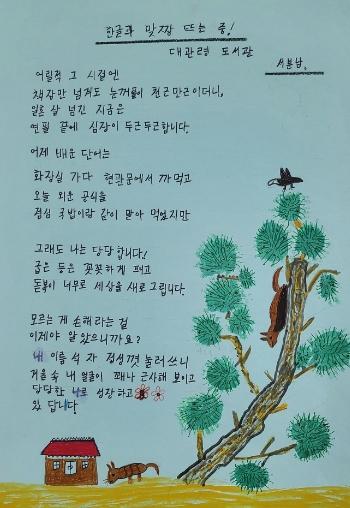 한글과 맞짱 뜨는 중!
대관령 도서관
서분남.
어릴적 그 시절엔
책장만 넘겨도 눈꺼풀이 천근만근이더니,
일흔 살 넘긴 지금은
연필 끝에 심장이 두근두근합니다.
어제 배운 단어는
화장실 가다 현관문에서 까먹고
오늘 외운 공식은
점심 국밥이랑 같이 말아 먹었지만
그래도 나는 당당합니다!
굽은 등은 꼿꼿하게 펴고
돋보기 너머로 세상을 새로 그립니다.
모르는 게 손해라는 걸
이제야 알았으니까요?
내 이름 석 자 정성껏 눌러쓰니
거울 속 내 얼굴이 꽤나 근사해 보이고
당당한 나로 성장하고
있 답니다